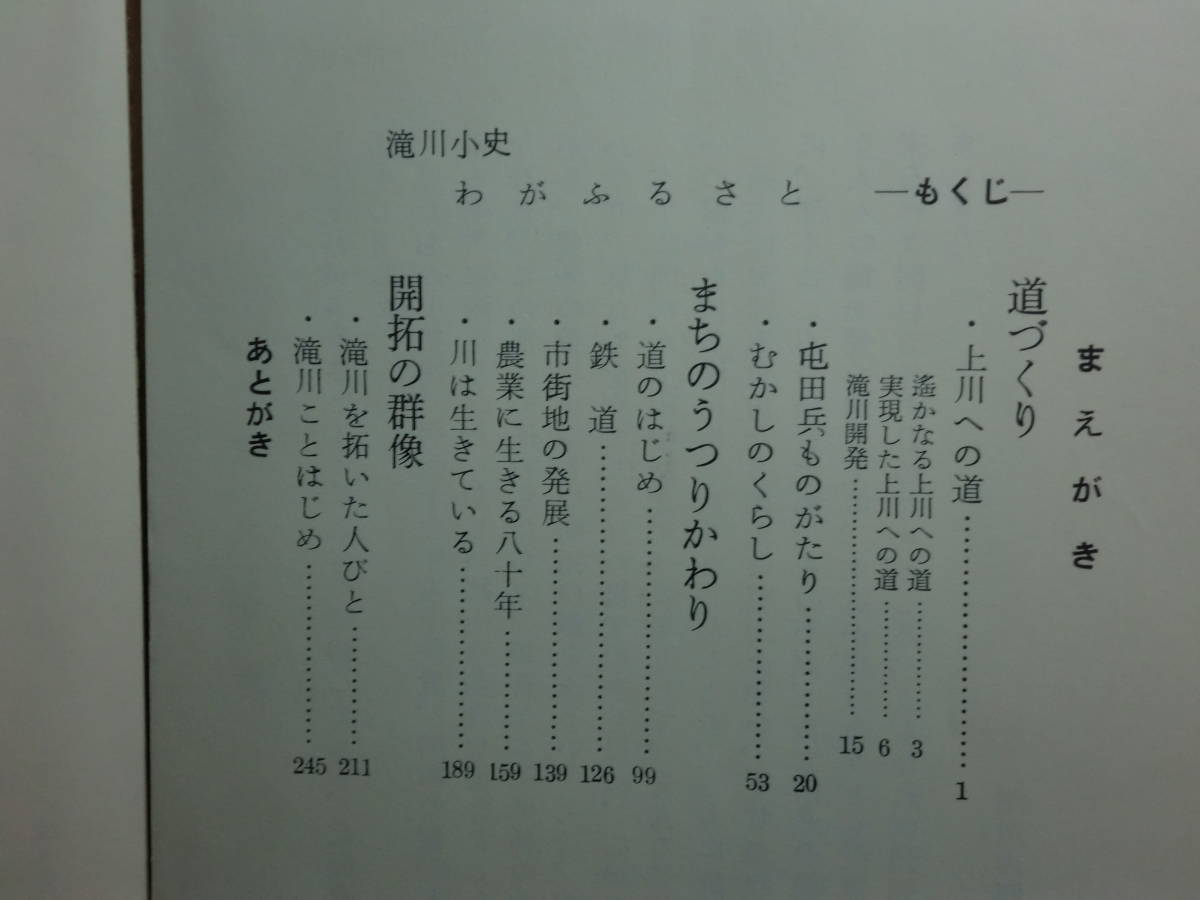 滝川小史
わがふるさと ―もくじ―
まえがき
道づくり
・上川への道……………………1
遙かなる上川への道…………3
実現した上川への道…………6
滝川開発……………………15
・屯田兵ものがたり……………20
・むかしのくらし………………53
まちのうつりかわり
・道のはじめ……………………99
・鉄　道…………………………126
・市街地の発展…………………139
・農業に生きる八十年…………159
・川は生きている………………189
開拓の群像
・滝川を拓いた人びと…………211
・滝川ことはじめ………………245
あとがき